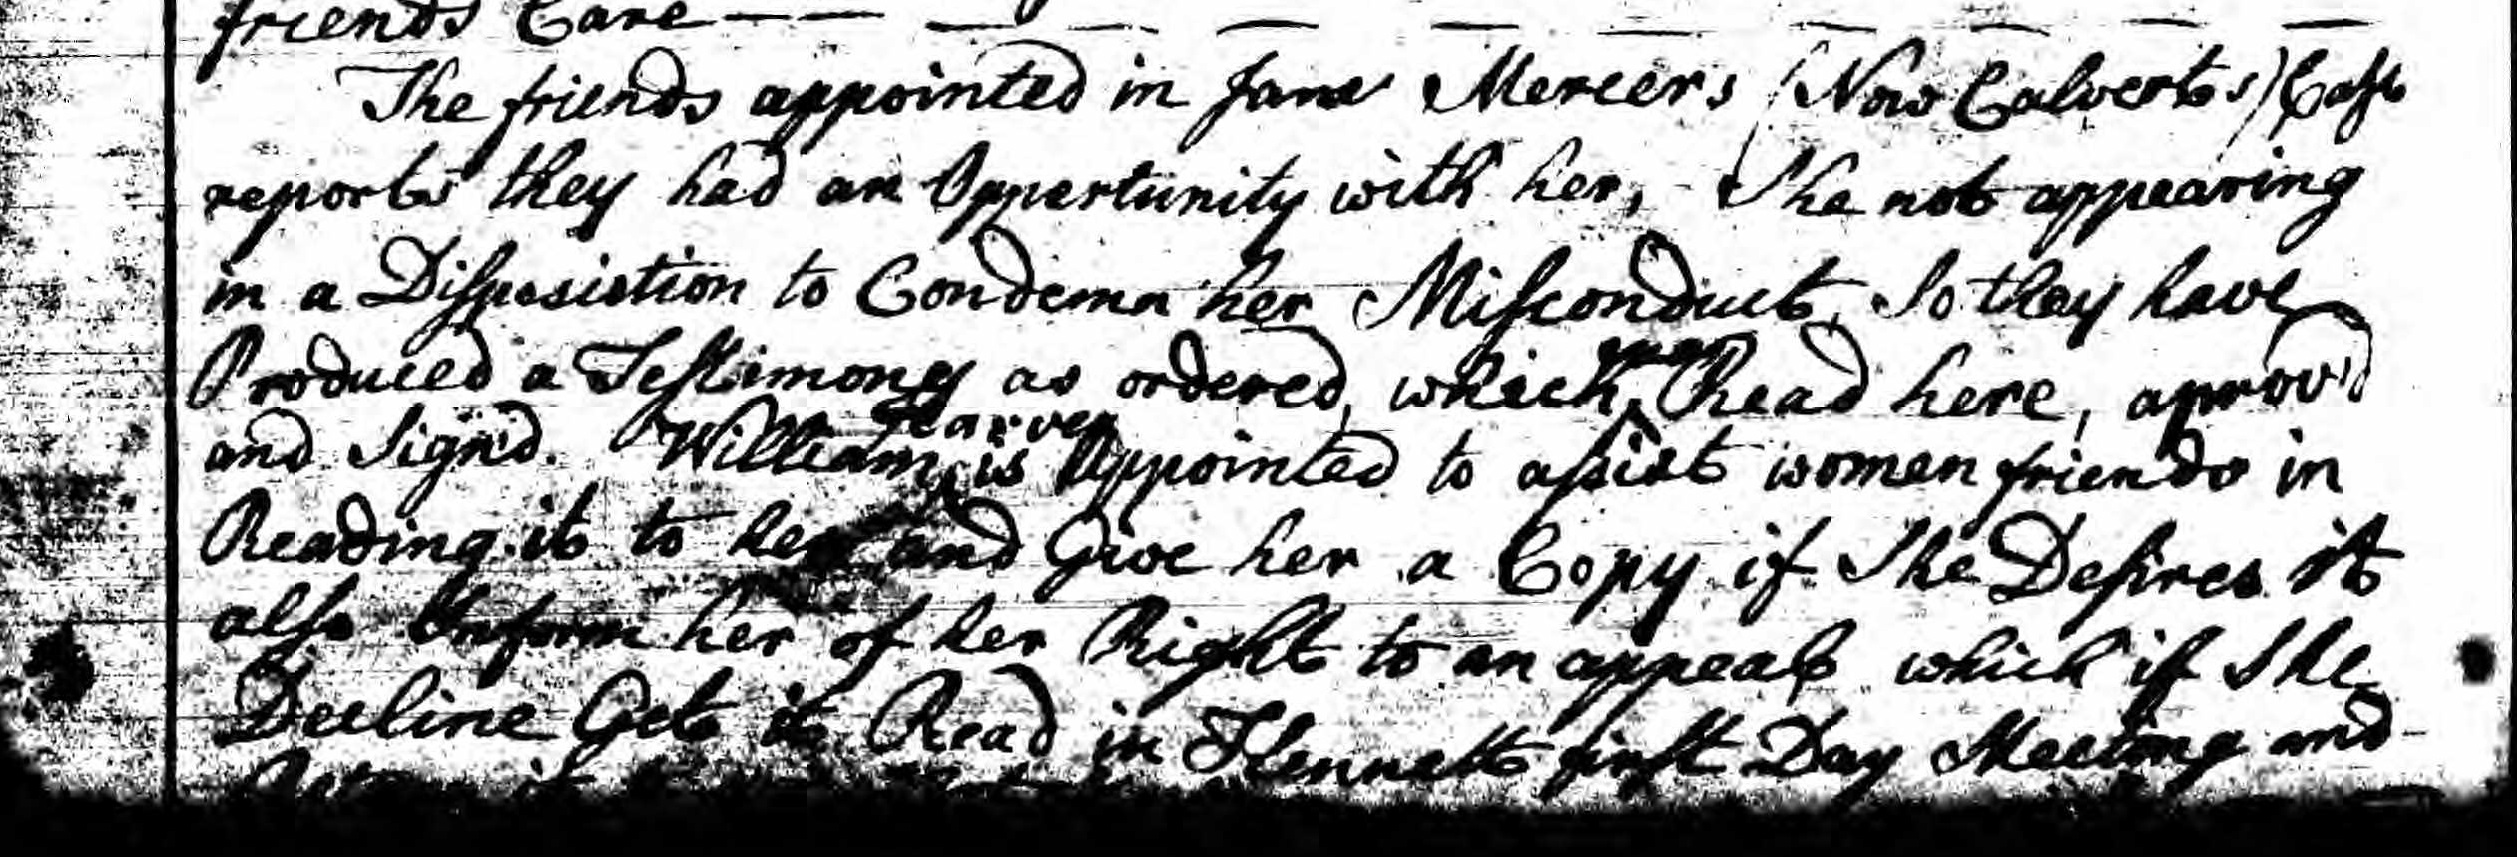 friends Care — — — — — — — — — —
The friends appointed in Jane Mercers (Now Calverts) Case
reports they had an Oppertunity with her, She not appearing
in a Disposistion to Condemn her Misconduct, So they have
Produced a Testimony as ordered, which was Read here, aprov'd
and Sign'd. William Harvey is Appointed to assist women friends in
Reading it to her and Give her a Copy if She Desires it
also Inform her of her Right to an appeal which if She
Decline Get it Read in Kennett first Day Meeting and